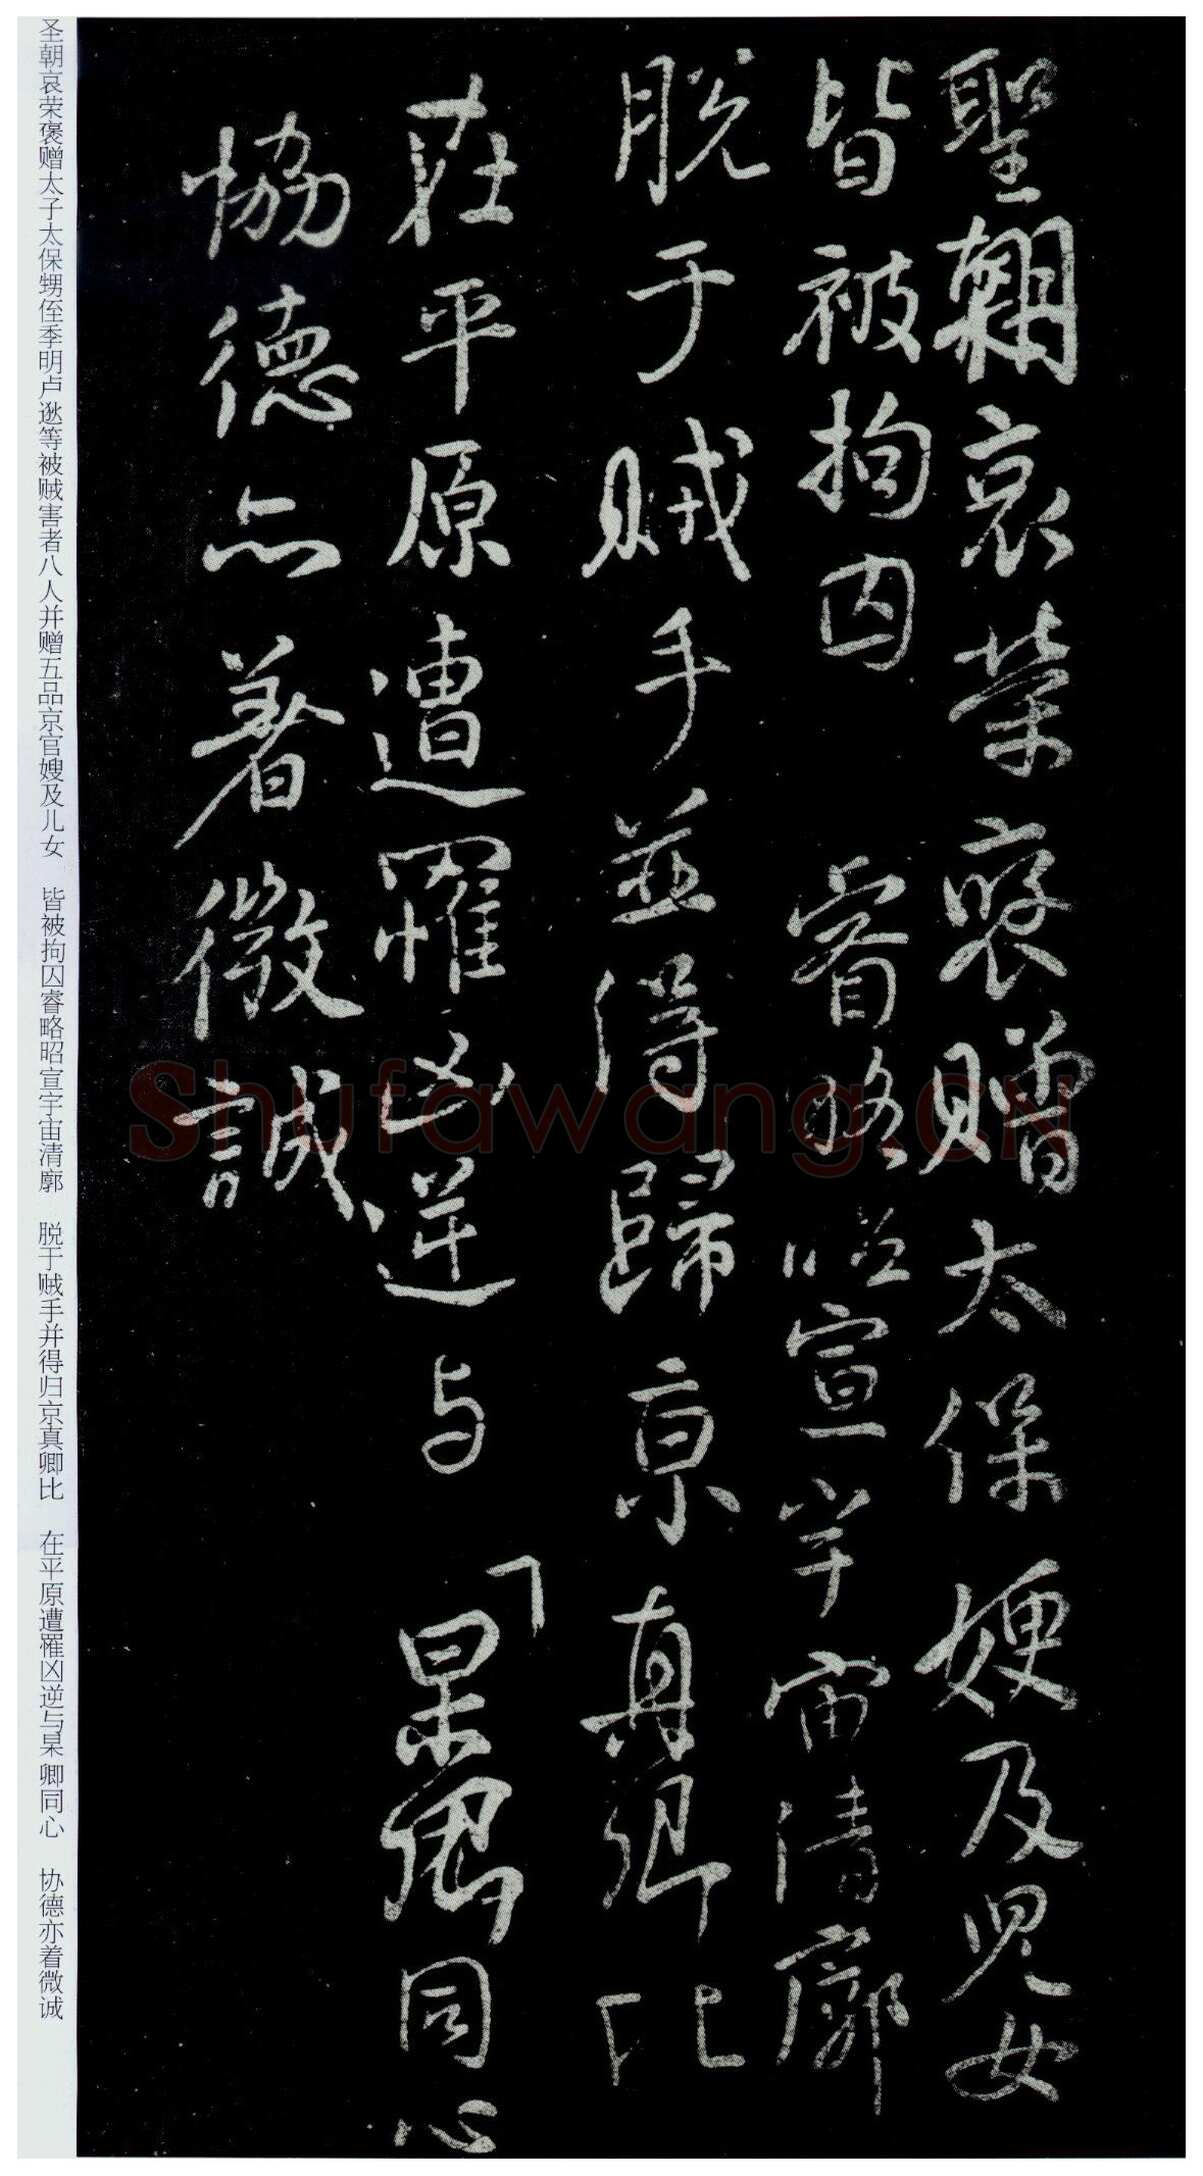 聖朝哀荣褒赠太保嫂及児女
皆被拘囚睿略昭宣宇宙清廓
脱于贼手並得歸京真卿比
在平原遭罹凶逆与杲卿同心
協德亦着微誠
圣朝哀荣褒赠太子太保甥侄季明卢逖等被贼害者八人并赠五品京官嫂及儿女 皆被拘囚睿略昭宣宇宙清廓 脱于贼手并得归京真卿比 在平原遭罹凶逆与杲卿同心 协德亦着微诚
Shufawang.CN